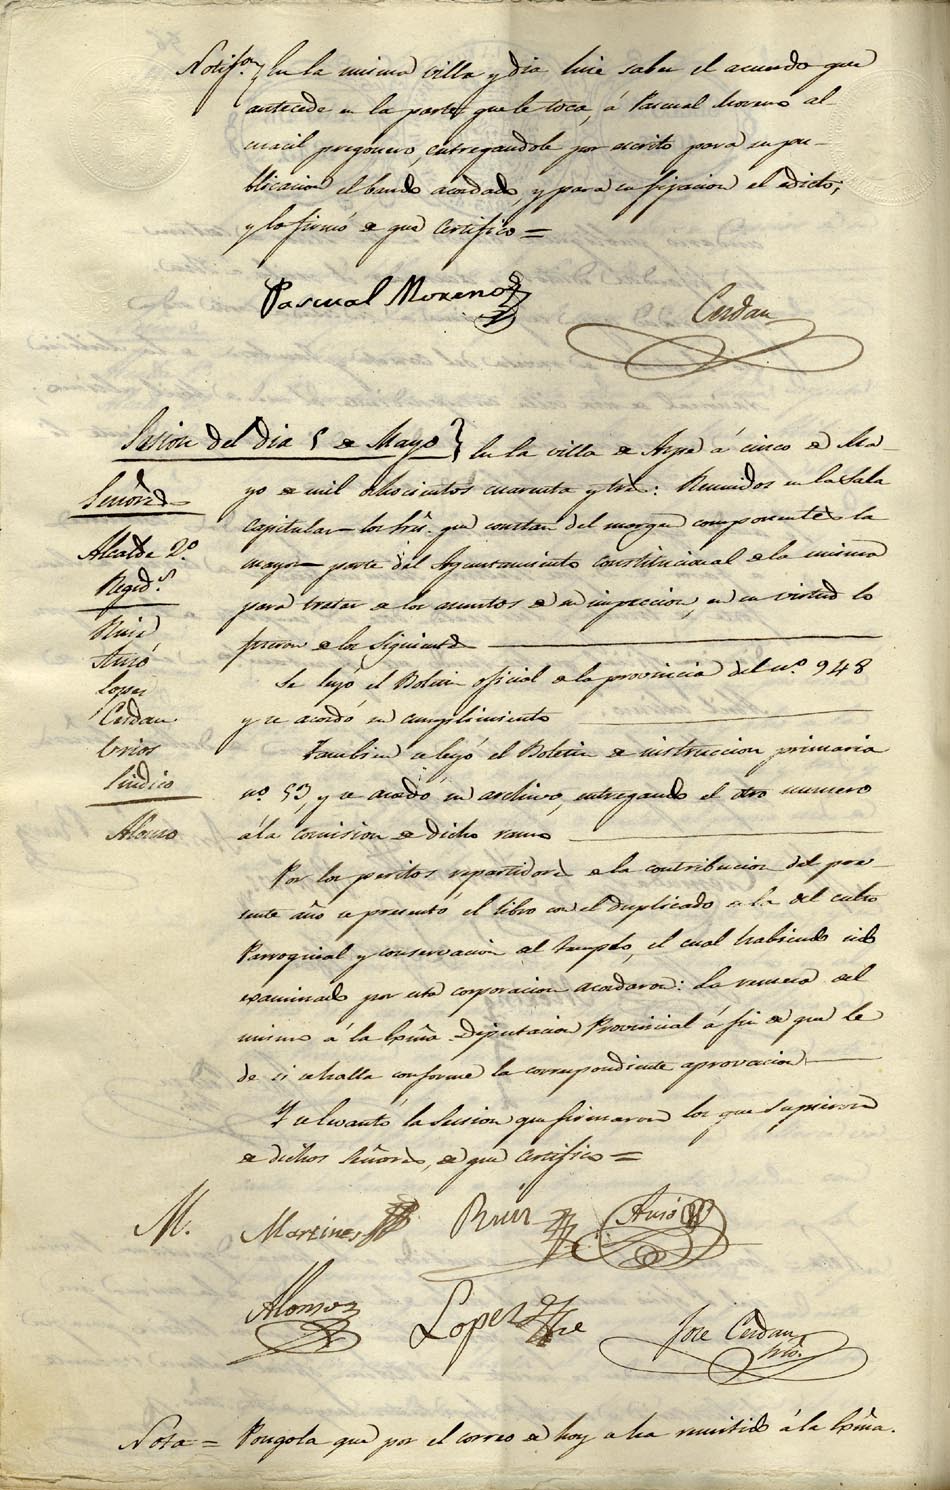 Notifon. } En la misma villa y dia hice saber el acuerdo que
antecede en la parte que le toca, á Pascual Moreno al-
guacil pregonero, entregandole por escrito para su pu-
blicacion el bando acordado, y para su fijacion el edicto;
y lo firmó de que Certifico =
Pascual Moreno
Cerdan
Sesion del dia 5 de Mayo } En la villa de Aspe á cinco de Ma-
yo de mil ochocientos cuarenta y tres: Reunidos en la Sala
Capitular los Sres. que constan del margen componentes la
mayor parte del Ayuntamiento constitucional de la misma
para tratar de los asuntos de su inspeccion, en su virtud lo
fueron de los siguientes
Señores
Alcalde 2º
Regids.
Ruiz
Auró
Lopez
Cerdan
Urios
Sindico
Alonso
Se leyó el Boletin oficial de la provincia del nº. 948
y se acordó su cumplimiento
Tambien se leyó el Boletin de instruccion primaria
nº. 53 y se acordó su archivo, entregando el otro numero
á la comision de dicho ramo
Por los peritos repartidores de la contribucion del pre-
sente año se presentó el libro con el duplicado de la del culto
Parroquial y conservacion del templo, el cual habiendo sido
examinado por esta corporacion acordaron: La remesa del
mismo á la Exma. Diputacion Provincial á fin de que le
dé si se halla conforme la correspondiente aprovacion
Y se levantó la Sesion que firmaron los que Supieron
de dichos Señores, de que Certifico =
M. Martinez Ruiz Auró
Alonso Lopez Jose Cerdan
Srio.
Nota = Pongola que por el correo de hoy se ha remitido á la Exma.